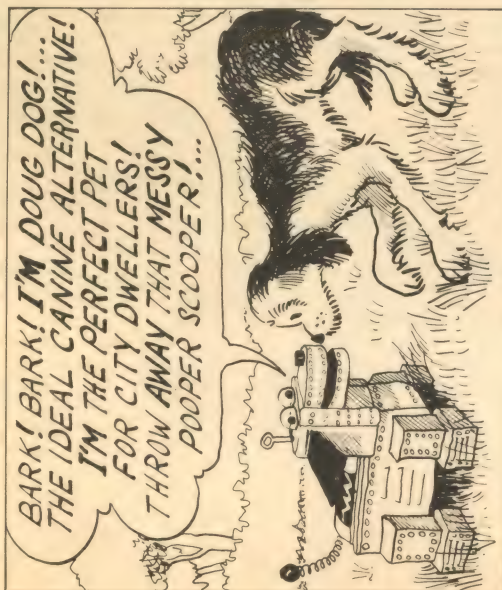 BARK! BARK! I'M DOUG DOG!...
THE IDEAL CANINE ALTERNATIVE!
I'M THE PERFECT PET
FOR CITY DWELLERS!
THROW AWAY THAT MESSY
POOPER SCOOPER!...